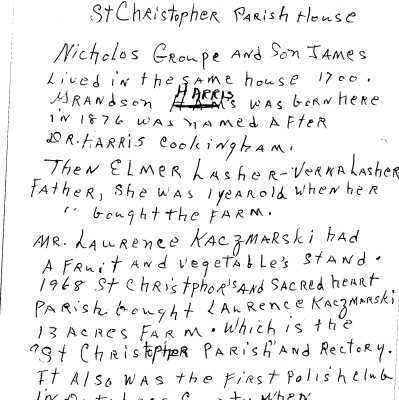 St Christopher Parish House
Nicholos Groupe and Son James
Lived in the same house 1700.
Grandson Harris was born here
in 1876 was named after
Dr. Farris Cookingham.
Then Elmer Lasher-Verna Lasher
Father, she was 1 year old when her
" bought the farm.
Mr. Laurence Kaczmarski had
a fruit and vegetable's stand.
1968 St Christphor's and Sacred Heart
Parish bought Laurence Kaczmarski
13 acres farm. Which is the
"St Christopher Parish" and Rectory.
It also was the first Polish club